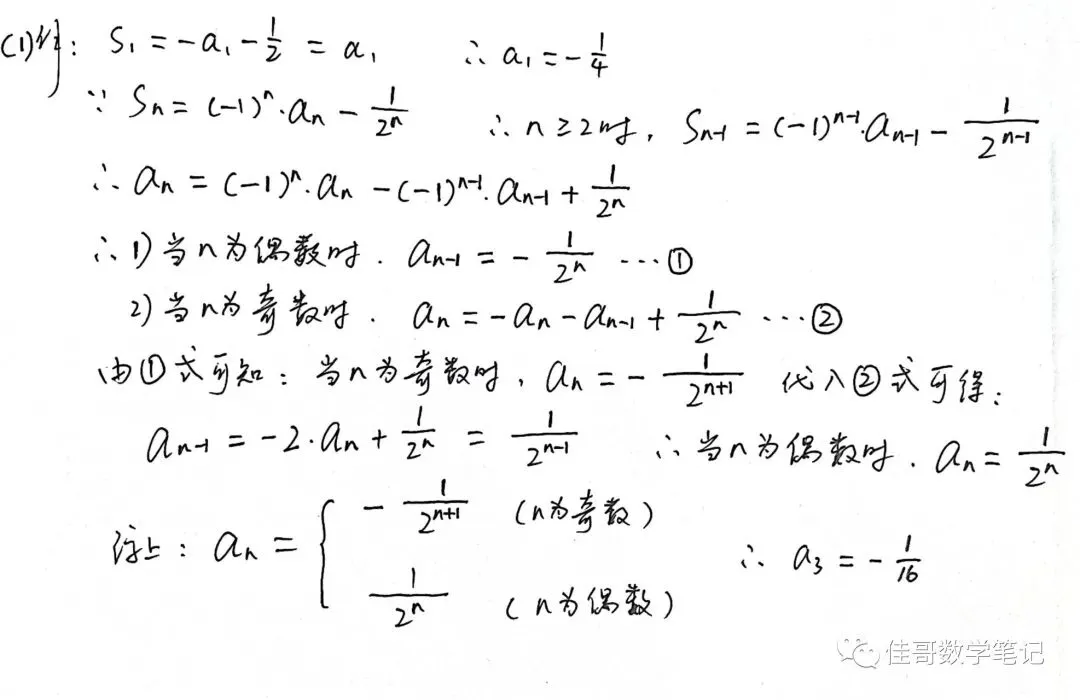 (1)解: S₁ = -a₁ - 1/2 = a₁ ∴ a₁ = -1/4
∵ Sₙ = (-1)ⁿ·aₙ - 1/2ⁿ ∴ n ≥ 2时, Sₙ₋₁ = (-1)ⁿ⁻¹·aₙ₋₁ - 1/2ⁿ⁻¹
∴ aₙ = (-1)ⁿ·aₙ - (-1)ⁿ⁻¹·aₙ₋₁ + 1/2ⁿ
∴ 1) 当n为偶数时. aₙ₋₁ = - 1/2ⁿ ···①
2) 当n为奇数时. aₙ = -aₙ - aₙ₋₁ + 1/2ⁿ ···②
由①式可知: 当n为奇数时, aₙ = - 1/2ⁿ⁺¹ 代入②式可得:
aₙ₋₁ = -2·aₙ + 1/2ⁿ = 1/2ⁿ⁻¹ ∴ 当n为偶数时. aₙ = 1/2ⁿ
综上: aₙ = { - 1/2ⁿ⁺¹ (n为奇数)
1/2ⁿ (n为偶数)
∴ a₃ = - 1/16
佳哥数学笔记